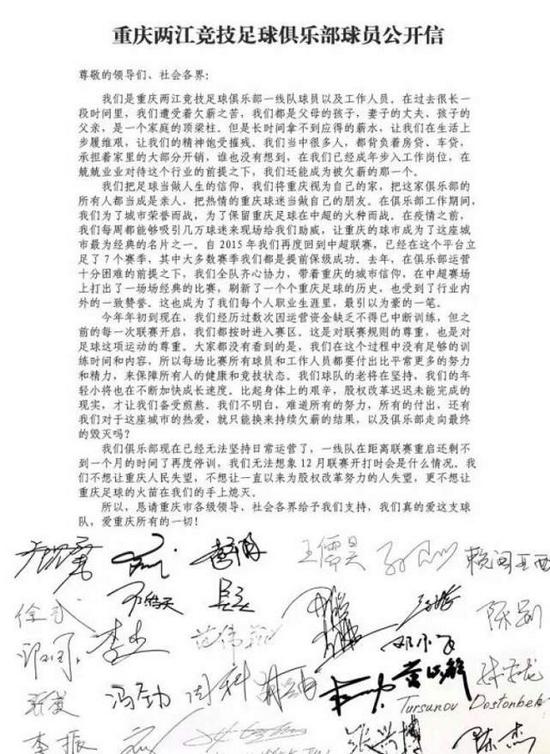 重庆两江竞技足球俱乐部球员公开信
尊敬的领导们、社会各界：
我们是重庆两江竞技足球俱乐部一线队球员以及工作人员。在过去很长一
段时间里，我们遭受着欠薪之苦，我们都是父母的孩子，妻子的丈夫、孩子的
父亲，是一个家庭的顶梁柱。但是长时间拿不到应得的薪水，让我们在生活上
步履维艰，让我们的精神饱受摧残。我们当中很多人，都背负着房贷、车贷，
承担着家里的大部分开销，谁也没有想到，在我们已经成年步入工作岗位，在
兢兢业业对待这个行业的前提之下，我们还能成为被欠薪的那一个。
我们把足球当做人生的信仰，我们将重庆视为自己的家，把这家俱乐部的
所有人都当成是亲人，把热情的重庆球迷当做自己的朋友。在俱乐部工作期间，
我们为了城市荣誉而战，为了保留重庆足球在中超的火种而战。在疫情之前，
我们每周都能够吸引几万球迷来现场给我们助威，让重庆的球市成为了这座城
市最为经典的名片之一。自 2015 年我们再度回到中超联赛，已经在这个平台立
足了 7 个赛季，其中大多数赛季我们都是提前保级成功。去年，在俱乐部运营
十分困难的前提之下，我们全队齐心协力，带着重庆的城市信仰，在中超赛场
上打出了一场场经典的比赛，刷新了一个个重庆足球的历史，也受到了行业内
外的一致赞誉。这也成为了我们每个人职业生涯里，最引以为豪的一笔。
今年年初到现在，我们经历过数次因运营资金缺乏不得已中断训练，但之
前的每一次联赛开启，我们都按时进入赛区。这是对联赛规则的尊重，也是对
足球这项运动的尊重。大家都没有看到的是，我们在这个过程中没有足够的训
练时间和内容，所以每场比赛所有球员和工作人员都要付出比平常更多的努力
和精力，来保障所有人的健康和竞技状态。我们球队的老将在坚持，我们的年
轻小将也在不断加快成长速度。比起身体上的艰辛，股权改革迟迟未能完成的
现实，才让我们备受煎熬。我们不明白，难道所有的努力，所有的付出，还有
我们对于这座城市的热爱，就只能换来持续欠薪的结果，以及俱乐部走向最终
的毁灭吗？
我们俱乐部现在已经无法坚持日常运营了，一线队在距离联赛重启还剩不
到一个月的时间了再度停训，我们无法想象 12 月联赛开打时会是什么情况。我
们不想让重庆人民失望，不想让一直以来为股权改革努力的人失望，更不想让
重庆足球的火苗在我们的手上熄灭。
所以，恳请重庆市各级领导、社会各界给予我们支持，我们真的爱这支球
队，爱重庆所有的一切！
王儒昊
陈
邓小飞
冯劲 周科
Tursunov Dostonbek
李振 张兴博 陈杰